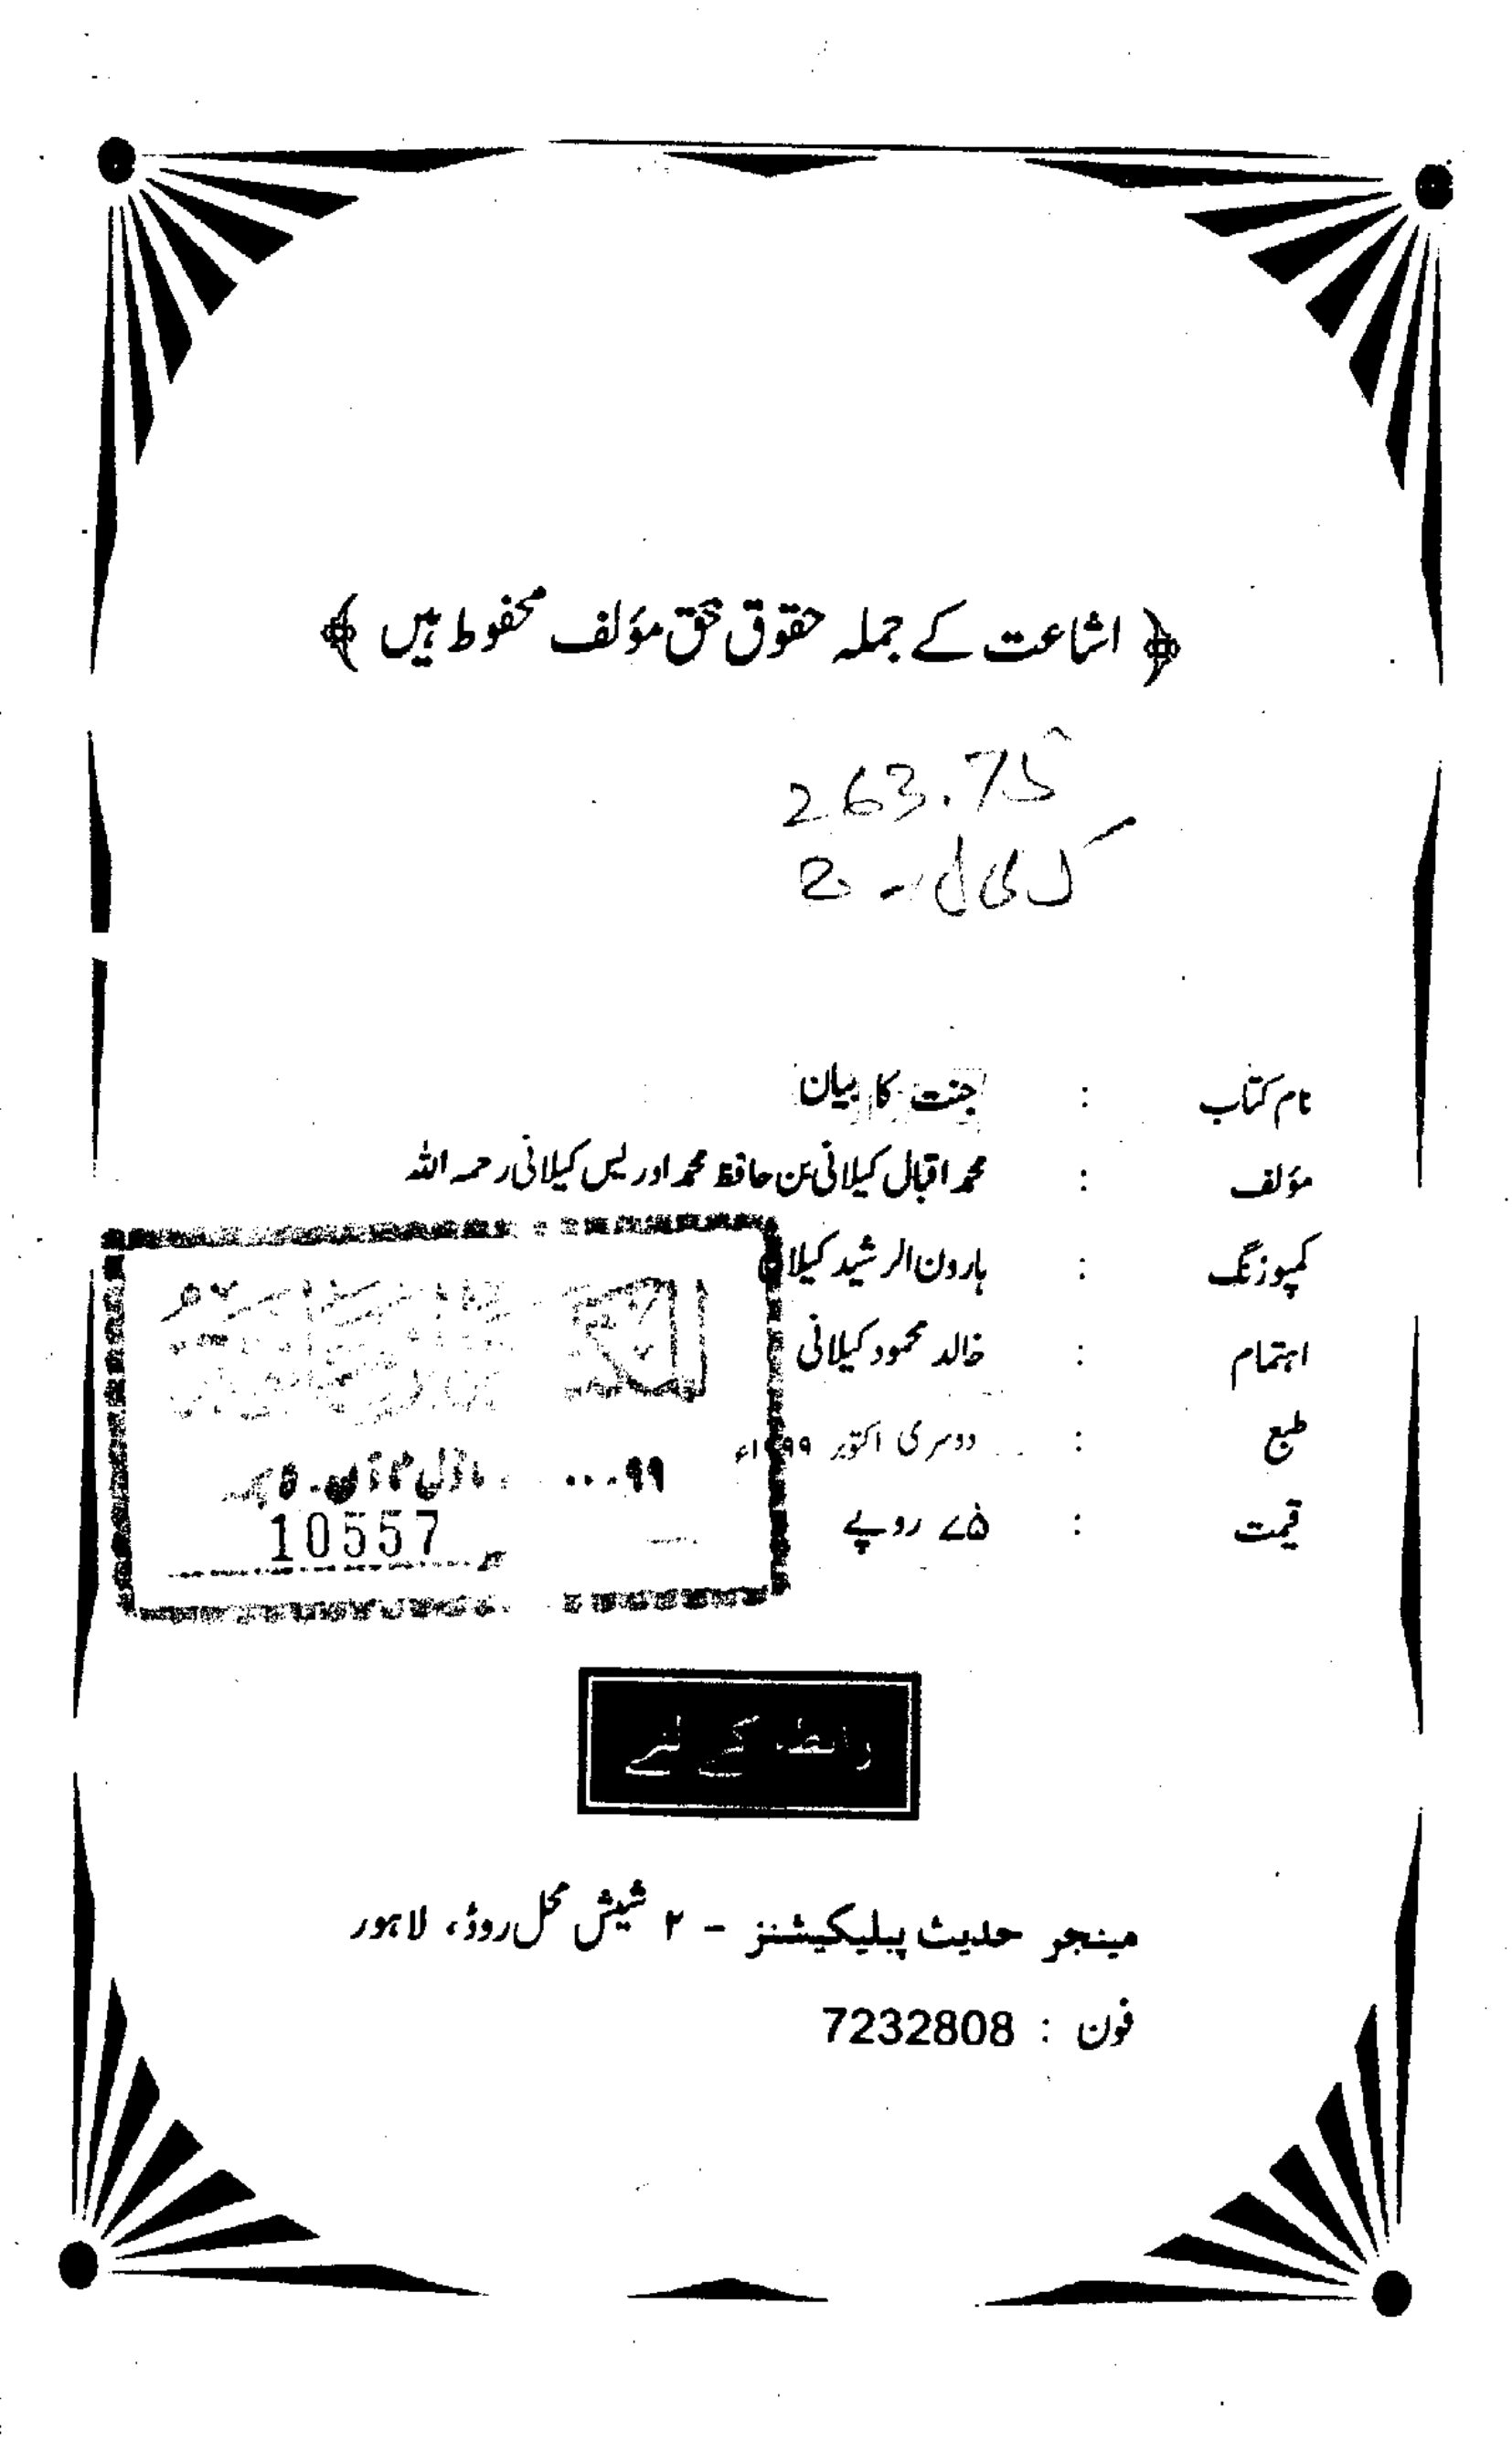 ﴿ اشاعت کے جملہ حقوق بحق مؤلف محفوظ ہیں ﴾
263.75
ک ی ل - ج
نام کتاب : جنت کا بیان
مؤلف : محمد اقبال کیلانی بن حافظ محمد ادریس کیلانی رحمہ اللہ
کمپوزنگ : ہارون الرشید کیلانی
اہتمام : خالد محمود کیلانی
طبع : دوسری اکتوبر ۱۹۹۹ء
قیمت : ۷۵ روپے
۹۹ ... ماڈل ٹاؤن - لاہور
10557
رابطہ کے لئے
مینجر حدیث پبلیکیشنز - ۲ شیش محل روڈ، لاہور
فون : 7232808